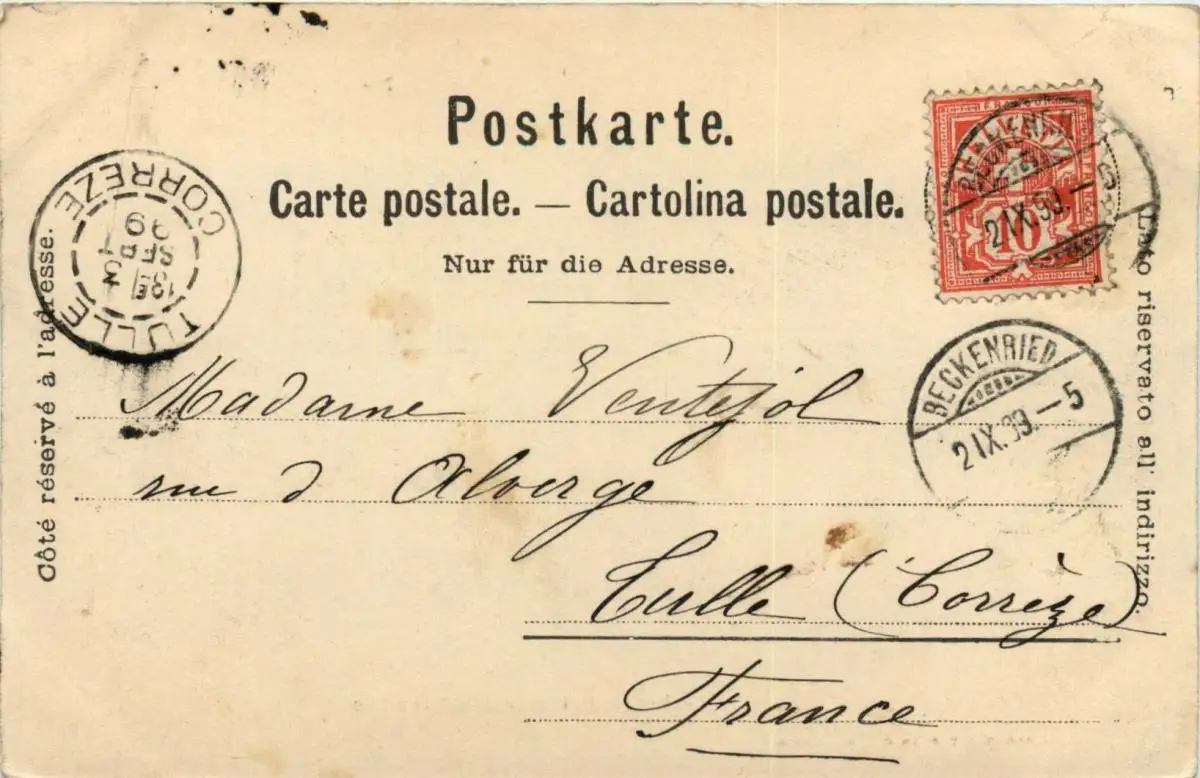 Postkarte.
Carte postale. — Cartolina postale.
Nur für die Adresse.
Côté réservé à l'adresse.
Lato riservato all' indirizzo.
TULLE
CORREZE
10
2 IX.99.–5
BECKENRIED
2 IX.99.–5
Madame Ventejol
rue d'Alverge
Tulle (Corrèze)
France